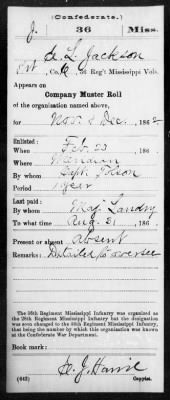 (Confederate.)
J. 36 Miss.
L. Jackson
Pvt, Co. , 36 Reg't Mississippi Vols.
Appears on
Company Muster Roll
of the organization named above,
for Nov. & Dec., 1862
Enlisted:
When Feb. 23, 186
Where Meridian
By whom
Period 1 year
Last paid:
By whom Maj. Landry
To what time Aug. 31, 186
Present or absent Absent
Remarks: Detailed to oversee
The 36th Regiment Mississippi Infantry was organized as
the 28th Regiment Mississippi Infantry but the designation
was soon changed to the 36th Regiment Mississippi Infantry,
that being the number by which this organization was known
at the Confederate War Department.
Book mark:
J. Harris
(642) Copyist.